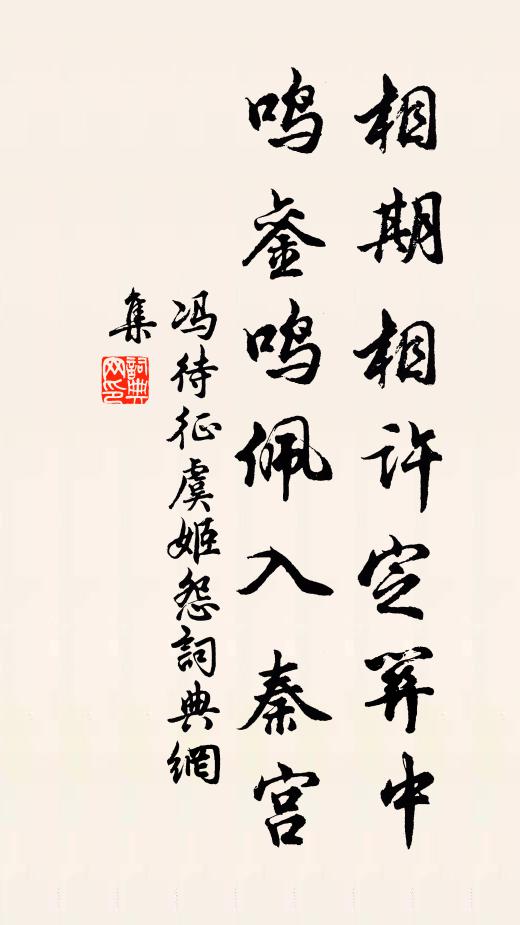 相期相许定关中
鸣銮鸣佩入秦宫
冯待征虞姬怨詞典網
集
詞典
网印